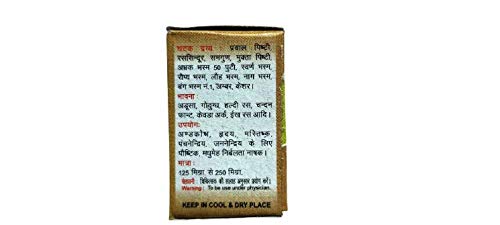 घटक द्रव्य : प्रवाल पिष्टी,
रससिन्दूर, समगुण, मुक्ता पिष्टी,
अभ्रक भस्म 50 पुटी, स्वर्ण भस्म,
रौप्य भस्म, लौह भस्म, नाग भस्म,
बंग भस्म नं.1, अम्बर, केशर।
भावना :
अडूसा, गोदुग्ध, हल्दी रस, चन्दन
फान्ट, केवडा अर्क, ईख रस आदि।
उपयोग:
अण्डकोष, हृदय, मस्तिष्क,
पंचनेन्द्रिय, जननेन्द्रिय के लिए
पौष्टिक, मधुमेह निर्बलता नाशक।
मात्रा :
125 मिग्रा से 250 मिग्रा.
चेतावनी : चिकित्सक की सलाह अनुसार प्रयोग करें।
Warning : To be use under physician.
KEEP IN COOL & DRY PLACE